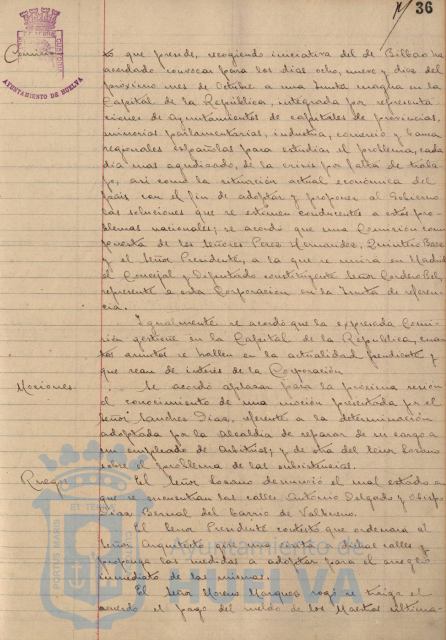 36
AYUNTAMIENTO DE HUELVA
que preside, recogiendo iniciativa del de Bilbao ha
acordado convocar para los dias ocho, nueve y diez del
próximo mes de Octubre a una Junta magna en la
Capital de la República, integrada por representa
ciones de Ayuntamientos de capitales de provincias,
minorias parlamentarias, industria, comercio y banca
regionales españolas para estudiar el problema, cada
dia mas agudizado, de la crisis por falta de traba
jo, asi como la situación actual económica del
país con el fin de adoptar y proponer al Gobierno
las soluciones que se estimen conducentes a estos pro
blemas nacionales; se acordó que una Comisión com
puesta de los Señores Perez Hernandez, Quintero Baez
y el Señor Presidente, a la que se unira en Madrid
el Concejal y Diputado constituyente Señor Cordero Bel,
represente a esta Corporación en la Junta de referen
cia.
Igualmente se acordó que la expresada Comi
sión gestione en la Capital de la Republica, cuan
tos asuntos se hallen en la actualidad pendiente y
que sean de interés de la Corporación.
Mociones.
Se acordó aplazar para la próxima sesión
el conocimiento de una moción presentada por el
Señor Sanchez Diaz, referente a la determinación
adoptada por la Alcaldia de separar de su cargo a
un empleado de Arbitrios; y de otra del Señor Lozano
sobre el problema de las subsistencias.
Ruegos
El Señor Lozano denunció el mal estado en
que se encuentran las calles Antonio Delgado y Obispo
Diaz Bernal del barrio de Valbueno.
El Señor Presidente contestó que ordenará al
Señor Arquitecto gire una visita a dichas calles y
proponga las medidas a adoptar para el arreglo
inmediato de las mismas.
El Señor Moreno Marquez rogó se traiga el
acuerdo el pago del sueldo de los Maestros ultima-
PORTUS MARIS ET TERRAE CUSTODIA
Ayuntamiento de
HUELVA